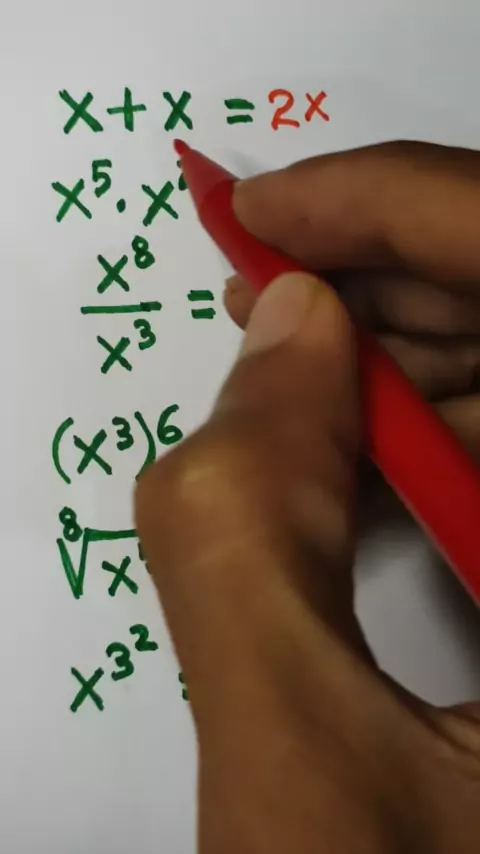 x + x = 2x
x⁵ · x
x⁸
x³ =
(x³)⁶
⁸√x
x^3^2